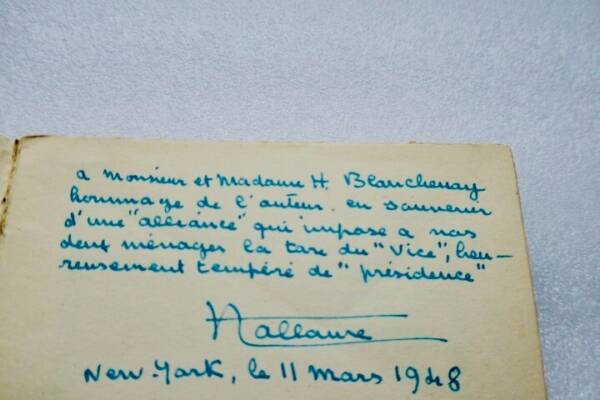 a Monsieur et Madame H. Blanchenay
hommage de l'auteur. en souvenir
d'une "alliance" qui impose a nos
deux ménages la tare du "Vice", heu-
reusement tempéré de "présidence"
New-York, le 11 mars 1948